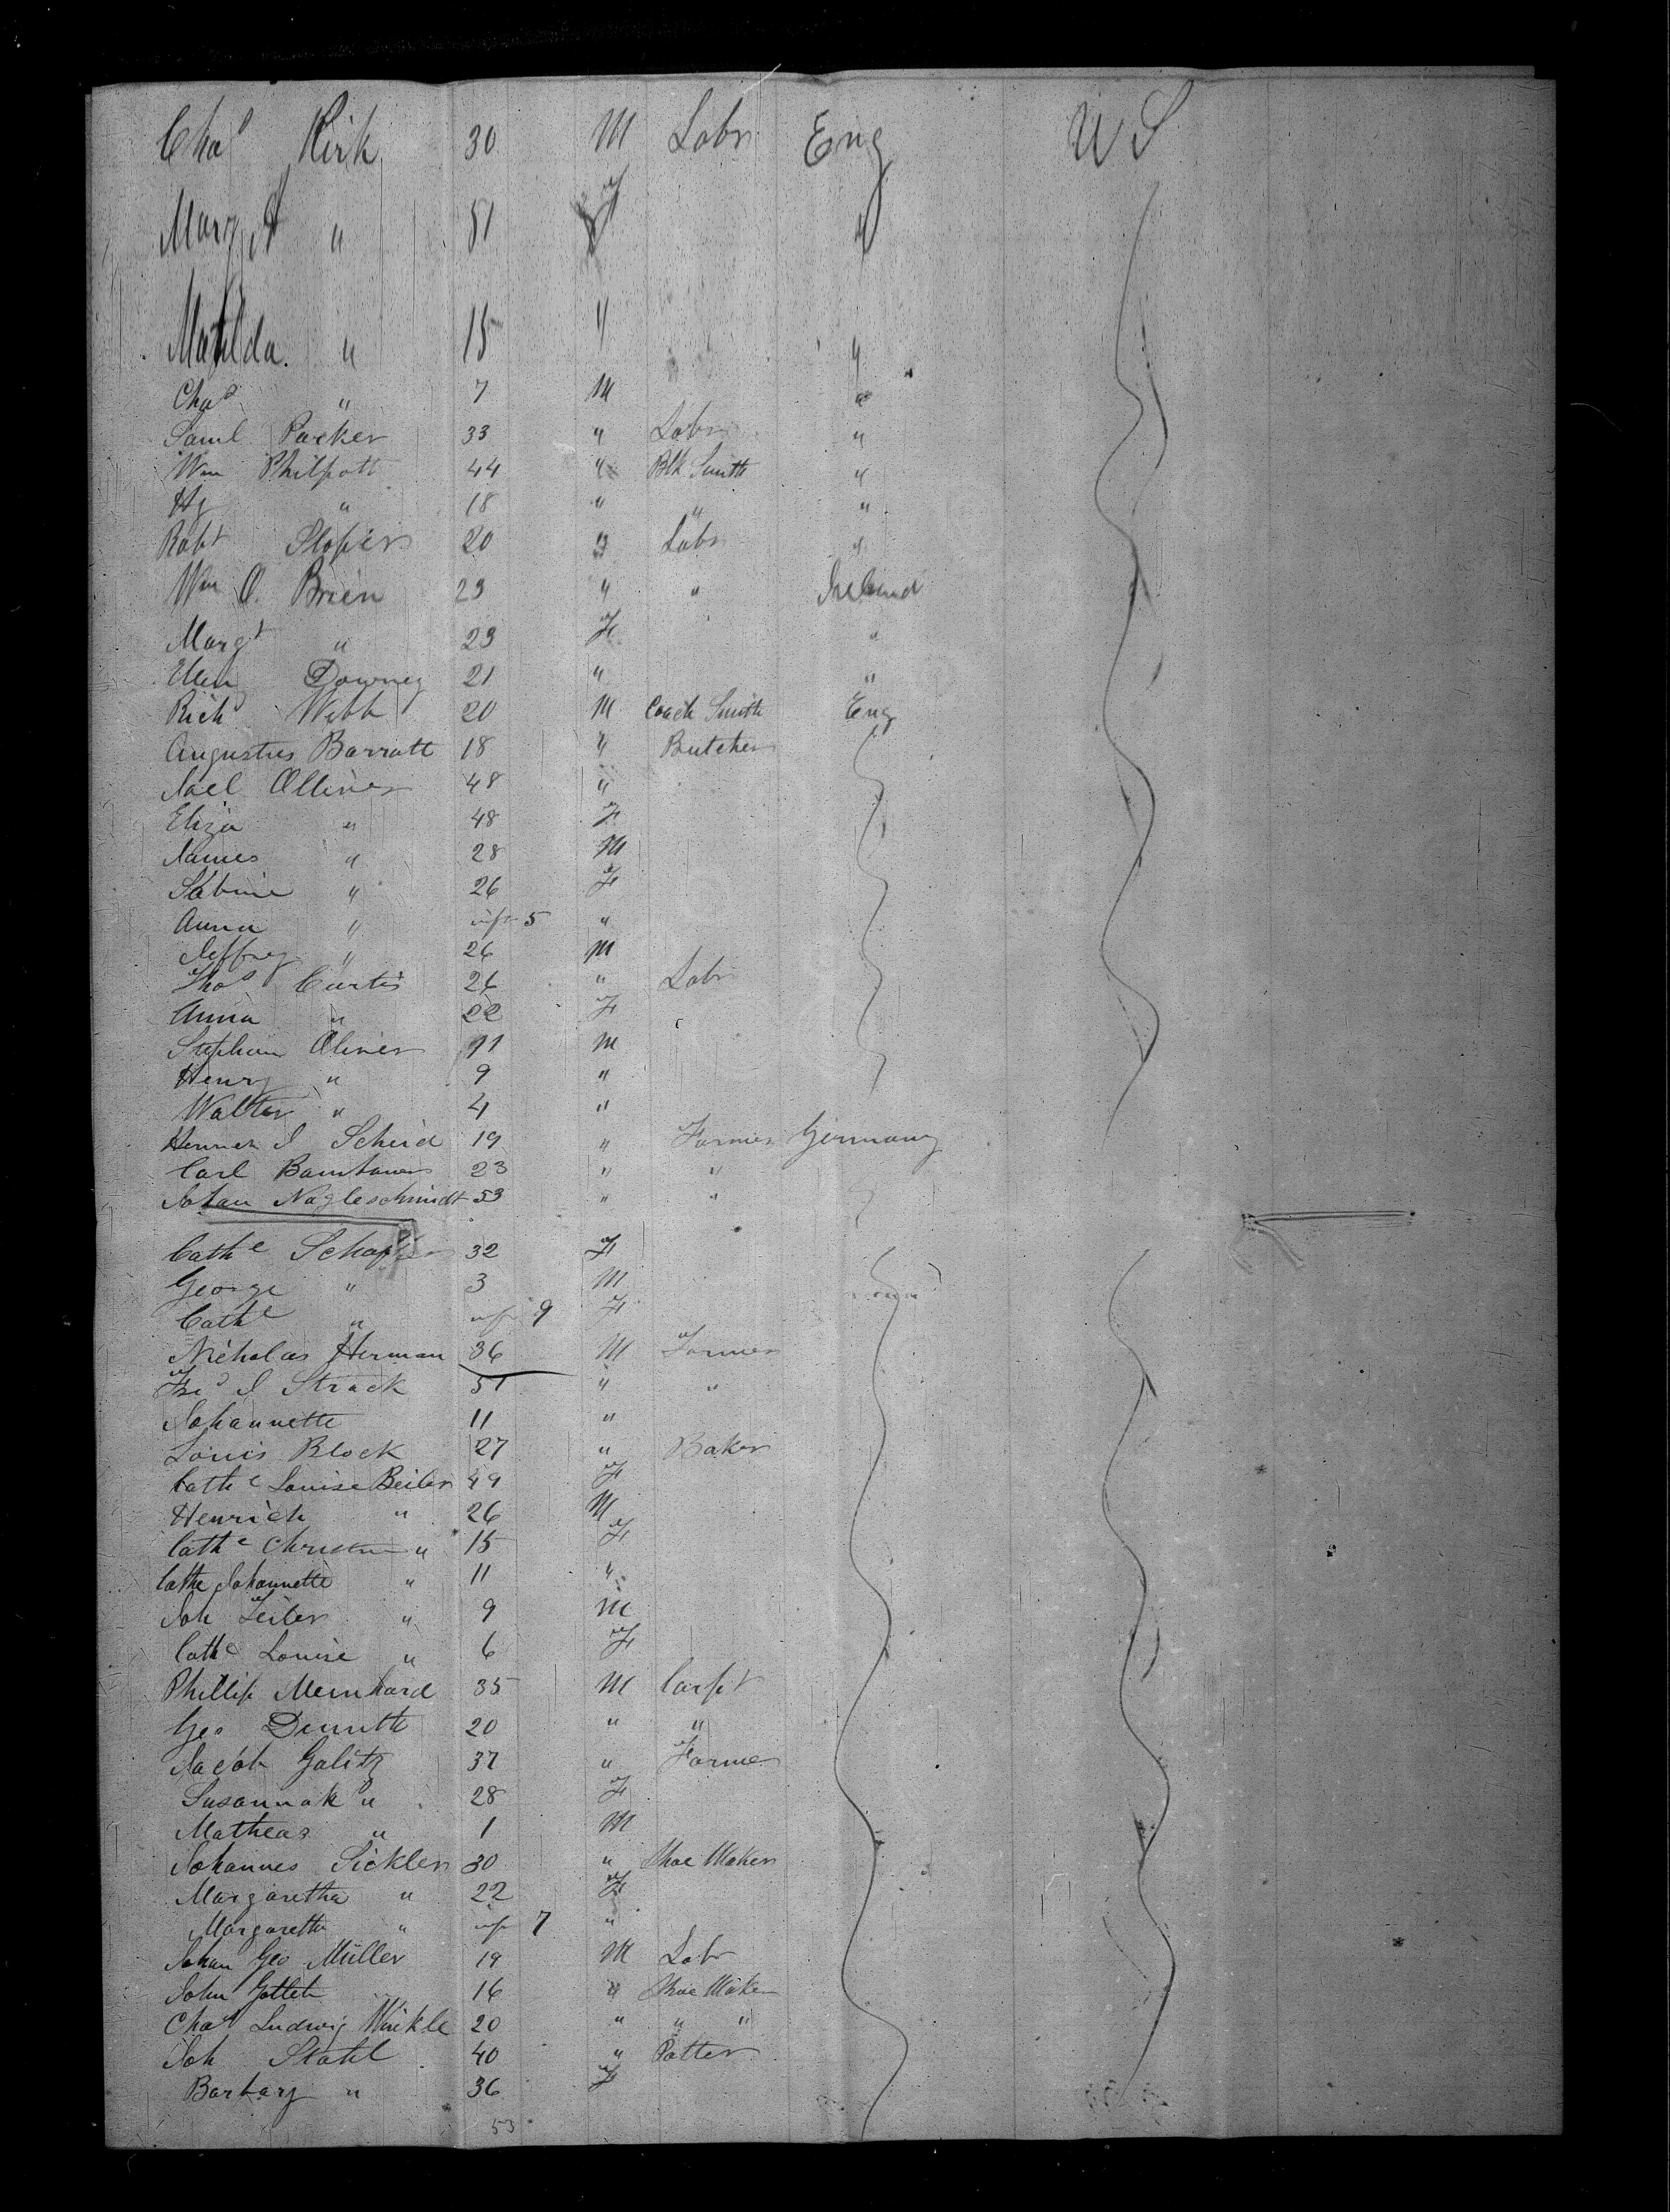 Chas Kirk 30 M Labr Eng U S
Margt " 51 F "
Matilda " 15 " "
Chas " 7 M "
Saml Packer 33 " Labr "
Wm Philpott 44 " Blk Smith "
Hy " 18 " " "
Robt Sloper 20 " Labr "
Wm O. Brien 23 " " Ireland
Margt " 23 F "
Ellen Downey 21 " "
Richd Webb 20 M Coach Smith Eng
Augustus Barratt 18 " Butcher
Jael Olliver 48 "
Eliza " 48 F
James " 28 M
Sabine " 26 F
Anna " inft 5 "
Jeffrey " 26 M
Thos Curtis 26 " Labr
Anna " 22 F
Stephan Oliver 11 M
Henry " 9 "
Walter " 4 "
J Scheid 19 " Farmer Germany
Carl 23 " "
Johan Nagleschmidt 53 " "
Cathe Schaffer 32 F
George " 3 M
Cathe " inft 9 F
Nicholas Herman 36 M Farmer
Fred J Strack 51 " "
Johannette 11 "
Louis Block 27 " Baker
Cathe Louise Beiler 49 F
Henrich " 26 M
Cathe " 15 F
Cathe Johannette " 11 "
Joh " 9 M
Cathe Louise " 6 F
Phillip Meinhard 35 M Carpt
Geo 20 " "
Jacob Galitz 37 " Farmer
Susannah " 28 F
Matheas " 1 M
Johannes Sickler 30 " Shoe Maker
Margaretha " 22 F
Margaretha " inft 7 "
Johan Geo Müller 19 M Labr
John 16 " Shoe Maker
Chas Ludwig Winkle 20 " " "
Joh Stahl 40 " Potter
Barbary " 36 F
53